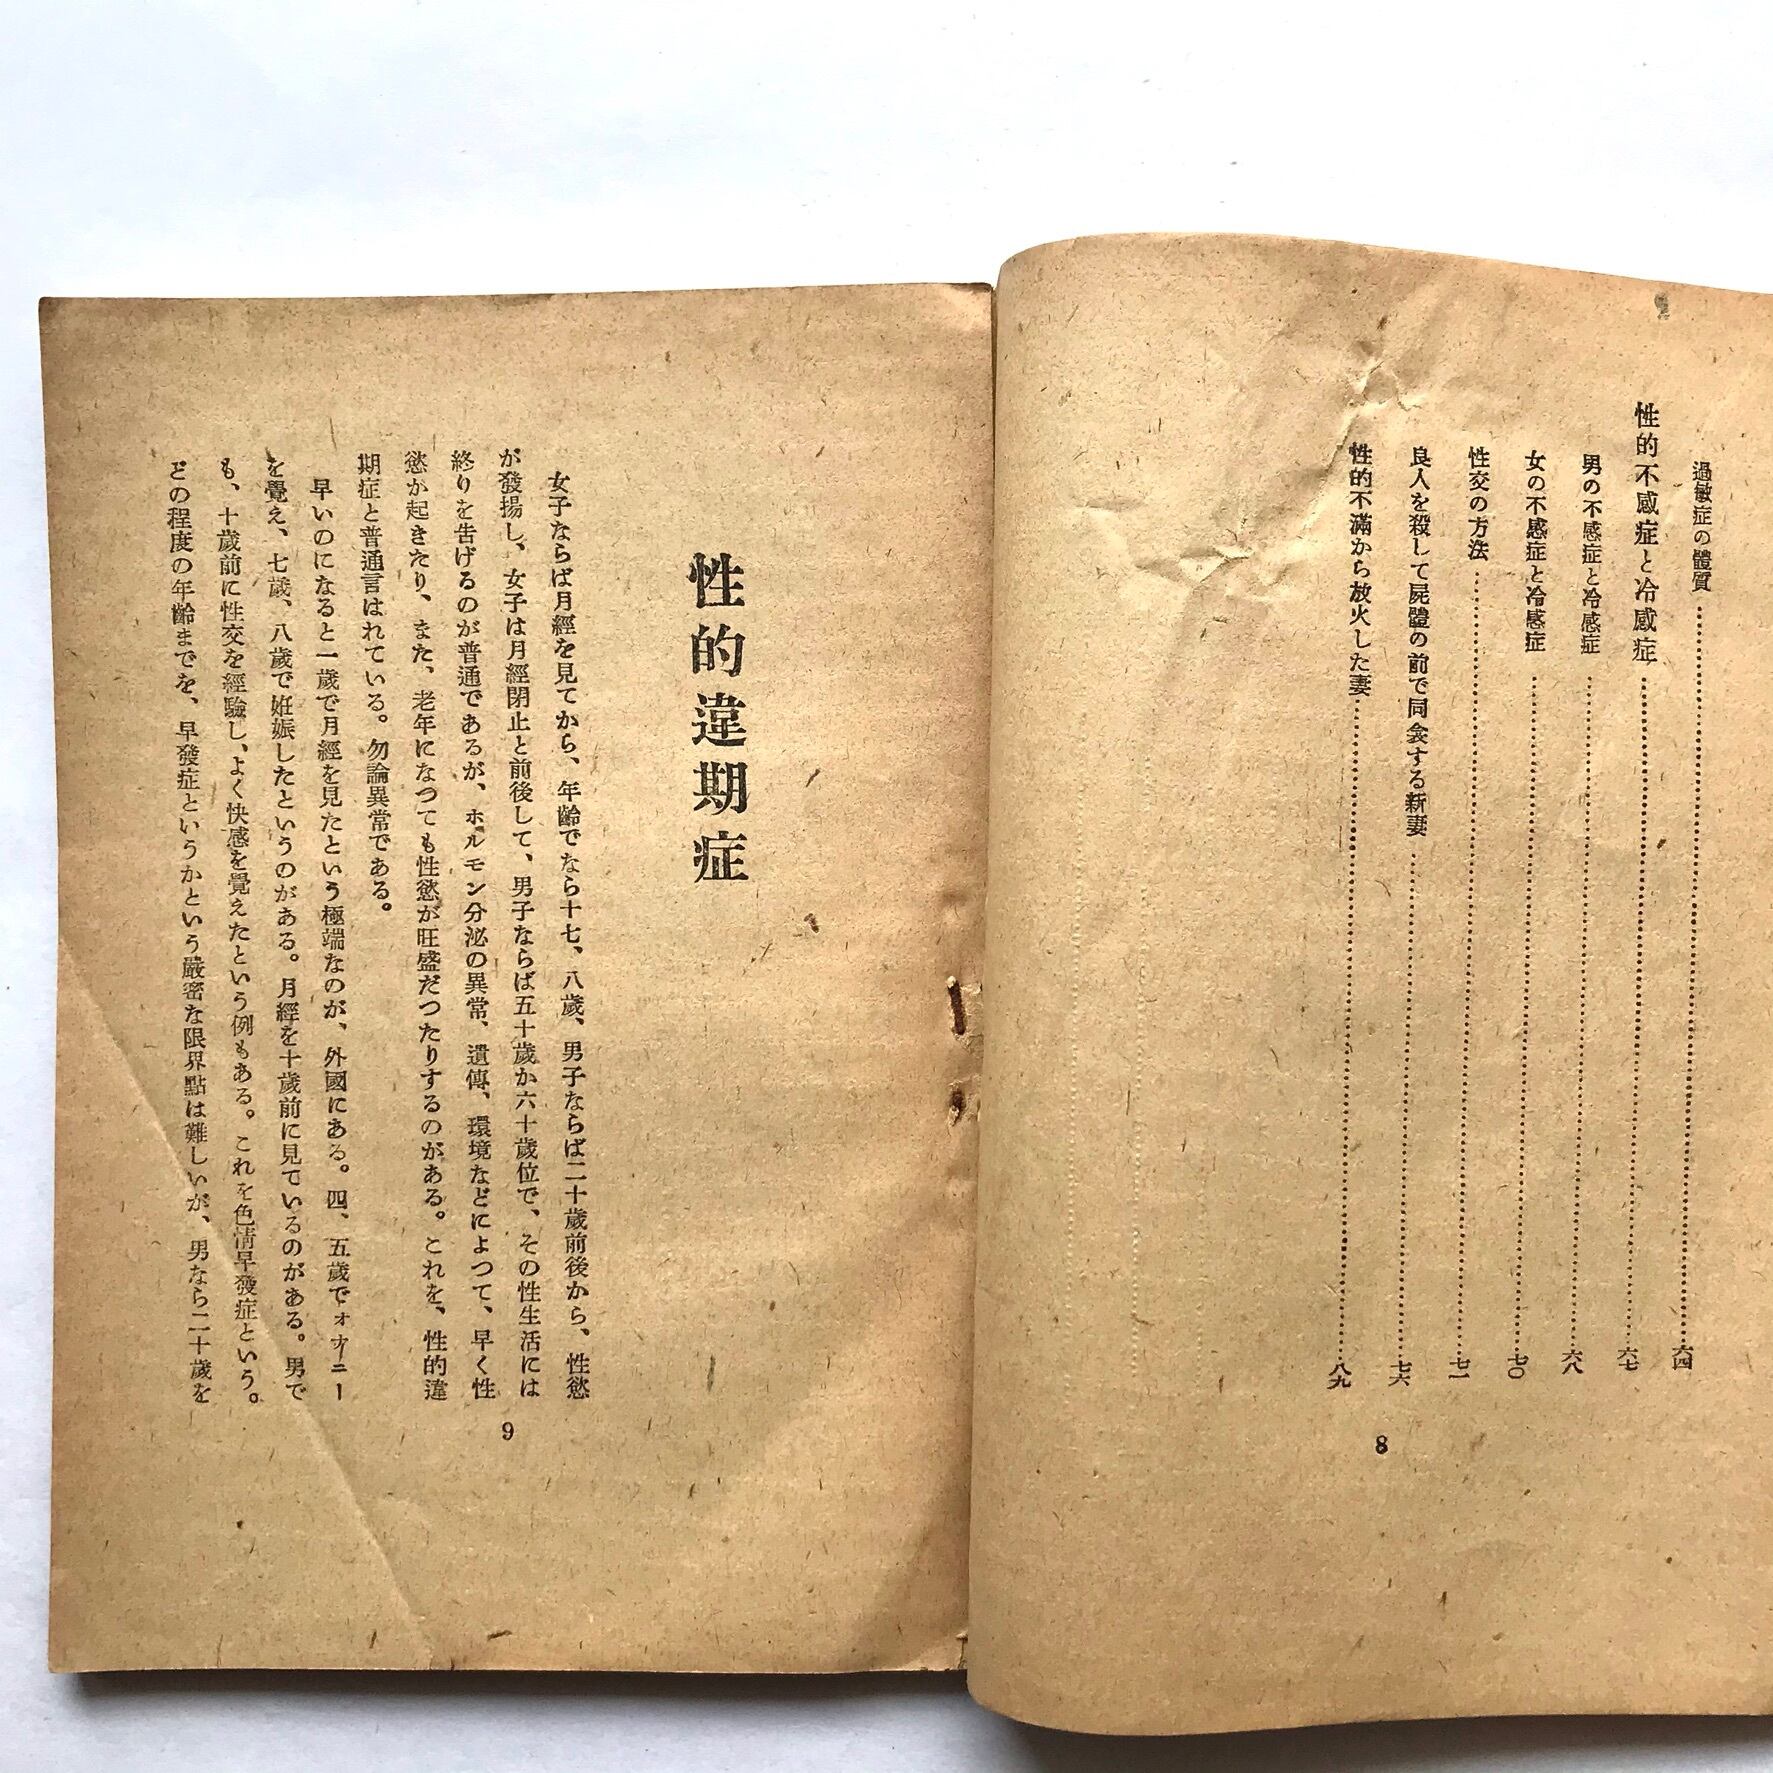 過敏症の體質……六四
性的不感症と冷感症……六七
男の不感症と冷感症……六八
女の不感症と冷感症……七〇
性交の方法……七一
良人を殺して屍體の前で同衾する新妻……七六
性的不滿から放火した妻……八九
8
性的違期症
女子ならば月經を見てから、年齡でなら十七、八歲、男子ならば二十歲前後から、性慾
が發揚し、女子は月經閉止と前後して、男子ならば五十歲か六十歲位で、その性生活には
終りを告げるのが普通であるが、ホルモン分泌の異常、遺傳、環境などによつて、早く性
慾が起きたり、また、老年になつても性慾が旺盛だつたりするのがある。これを、性的違
期症と普通言はれている。勿論異常である。
早いのになると一歲で月經を見たという極端なのが、外國にある。四、五歲でオナニー
を覺え、七歲、八歲で姙娠したというのがある。月經を十歲前に見ているのがある。男で
も、十歲前に性交を經驗し、よく快感を覺えたという例もある。これを色情早發症という。
どの程度の年齡までを、早發症というかという嚴密な限界點は難しいが、男なら二十歲を
9